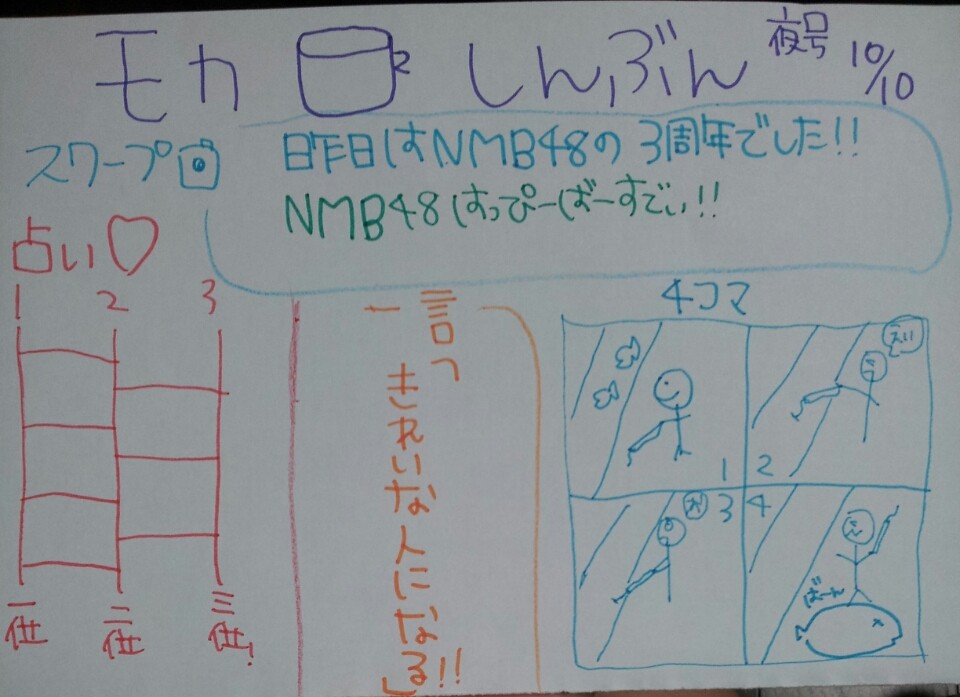 モカ しんぶん 夜号 10/10
スクープ
昨日はNMB48の3周年でした!!
NMB48はっぴーばーすでぃ!!
占い♡
1 2 3
一位 二位 三位!
一言っ
きれいな人になる!!
4コマ
1
2
えい
3
4
ばーん